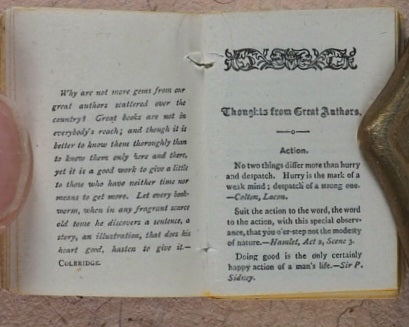 Why are not more gems from our
great authors scattered over the
country? Great books are not in
everybody's reach; and though it is
better to know them thoroughly than
to know them only here and there,
yet it is a good work to give a little
to those who have neither time nor
means to get more. Let every book-
worm, when in any fragrant scarce
old tome he discovers a sentence, a
story, an illustration, that does his
heart good, hasten to give it.—
COLERIDGE.
Thoughts from Great Authors.
Action.
No two things differ more than hurry
and despatch. Hurry is the mark of a
weak mind; despatch of a strong one.
—Colton, Lacon.
Suit the action to the word, the word
to the action, with this special observ-
ance, that you o'er-step not the modesty
of nature.—Hamlet, Act 2, Scene 3.
Doing good is the only certainly
happy action of a man's life.—Sir P.
Sidney.